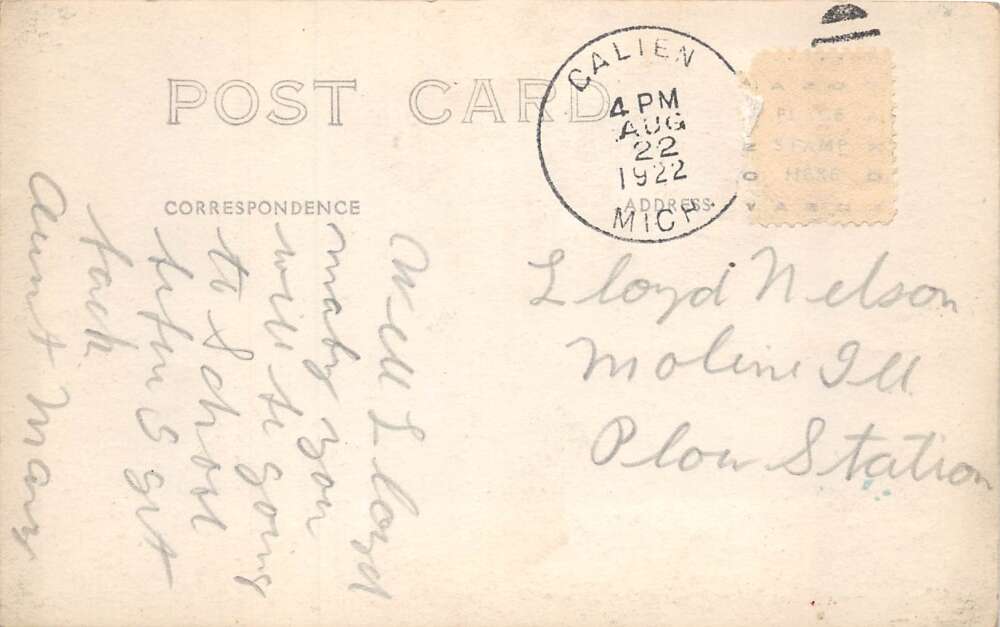 POST CARD
CALIEN
4 PM
AUG
22
1922
MICH.
PLACE
STAMP
HERE
CORRESPONDENCE
ADDRESS
Well Lloyd
maby you
will be going
to School
befor I get
back
Aunt Mary
Lloyd Nelson
Moline Ill
Plow Station